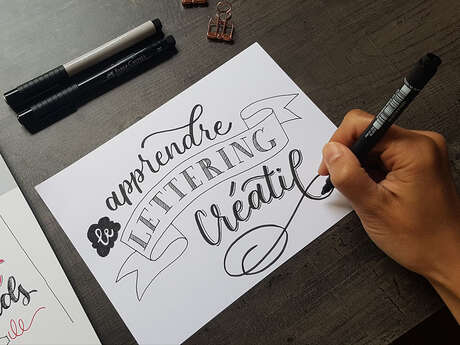 apprendre
le LETTERING
Créatif